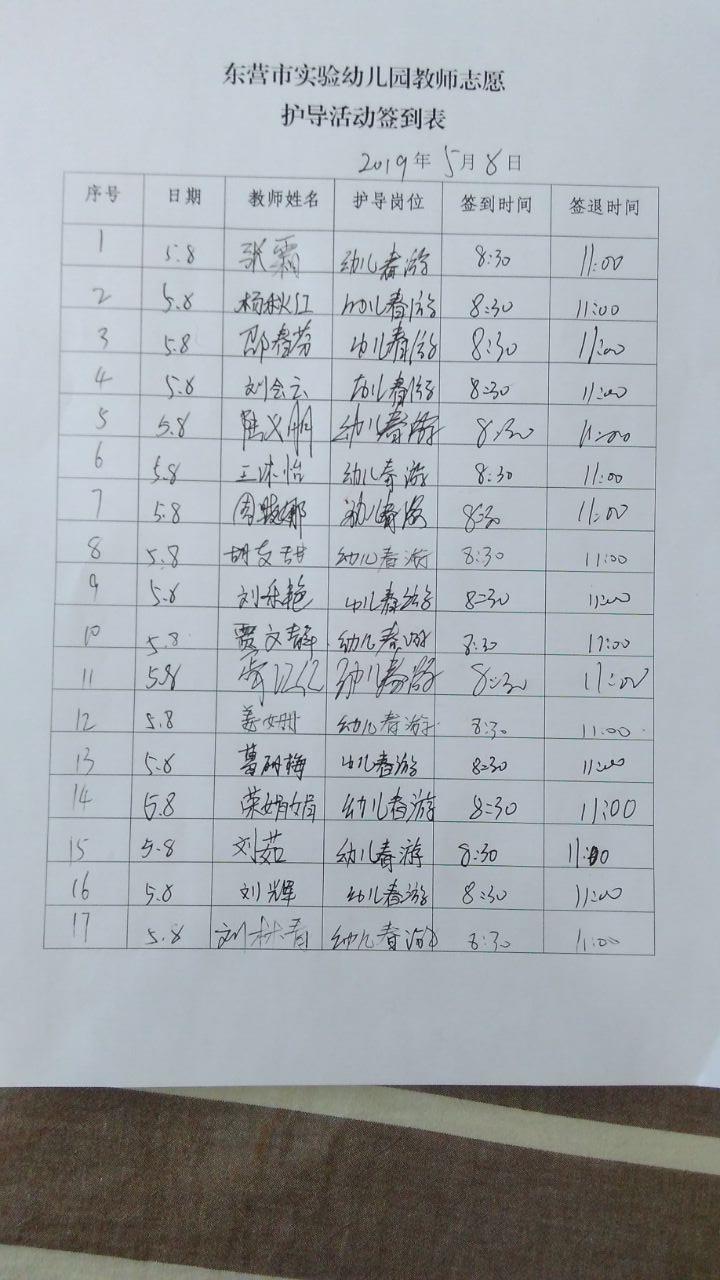 东营市实验幼儿园教师志愿
护导活动签到表
2019年5月8日
序号 日期 教师姓名 护导岗位 签到时间 签退时间
1 5.8 张霜 幼儿春游 8:30 11:00
2 5.8 杨秋红 幼儿春游 8:30 11:00
3 5.8 邵春芬 幼儿春游 8:30 11:00
4 5.8 刘会云 幼儿春游 8:30 11:00
5 5.8 陆义明 幼儿春游 8:30 11:00
6 5.8 王沐怡 幼儿春游 8:30 11:00
7 5.8 周晓娜 幼儿春游 8:30 11:00
8 5.8 胡友甜 幼儿春游 8:30 11:00
9 5.8 刘乐艳 幼儿春游 8:30 11:00
10 5.8 贾文静 幼儿春游 8:30 11:00
11 5.8 幼儿春游 8:30 11:00
12 5.8 姜姗 幼儿春游 8:30 11:00
13 5.8 葛丽梅 幼儿春游 8:30 11:00
14 5.8 荣娟娟 幼儿春游 8:30 11:00
15 5.8 刘茹 幼儿春游 8:30 11:00
16 5.8 刘辉 幼儿春游 8:30 11:00
17 5.8 刘林青 幼儿春游 8:30 11:00